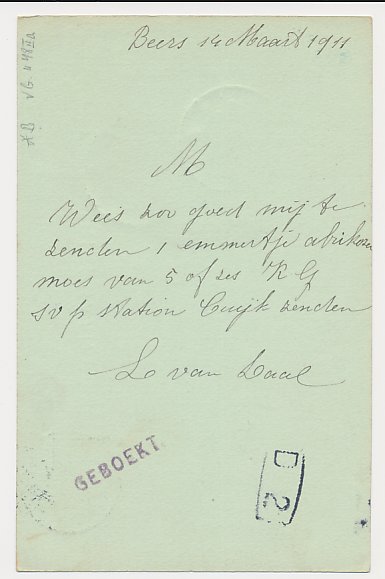 Beers 14 Maart 1911
M
Wees zoo goed mij te
zenden 1 emmertje abrikozen
moes van 5 of zes K G
svp station Cuijk zenden
L van Daal
GEBOEKT
D 2